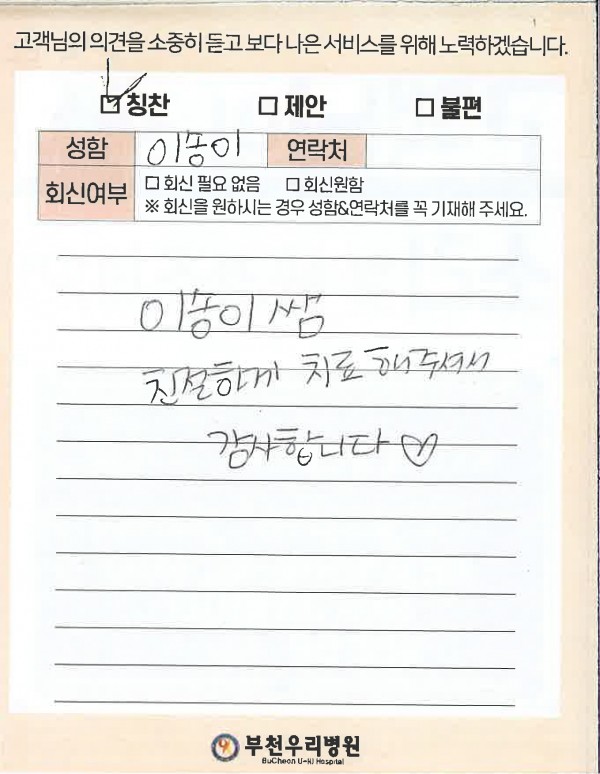 고객님의 의견을 소중히 듣고 보다 나은 서비스를 위해 노력하겠습니다.
☑ 칭찬 ☐ 제안 ☐ 불편
성함 이송이 연락처
회신여부 ☐ 회신 필요 없음 ☐ 회신원함
※ 회신을 원하시는 경우 성함&연락처를 꼭 기재해 주세요.
이송이 쌤
친절하게 치료해주셔서
감사합니다 ♡
부천우리병원
BuCheon U-Ri Hospital